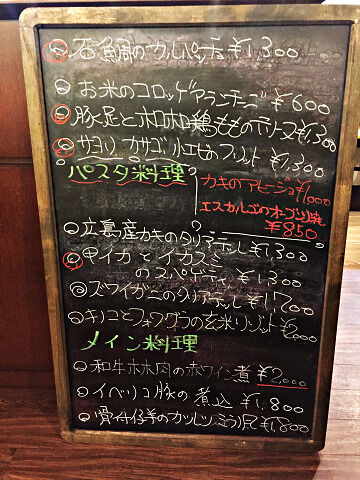 石鯛のカルパッチョ ¥1,300
お米のコロッケ アランチーニ ¥600
豚足と和和鶏もものテリーヌ ¥1,300
サヨリ、カサゴ、小エビのフリット ¥1,300
パスタ料理
カキのアヒージョ ¥1,000
エスカルゴのオーブン焼
¥850
広島産カキのタリアテッレ ¥1,300
甲イカとイカスミ
のスパゲティ ¥1,300
ズワイガニのタリアテッレ ¥1,700
キノコとフォアグラの玄米リゾット ¥2,000
メイン料理
和牛ホホ肉の赤ワイン煮 ¥2,000
イベリコ豚の煮込 ¥1,800
骨付仔羊のカツレツ ミラノ風 ¥1,800